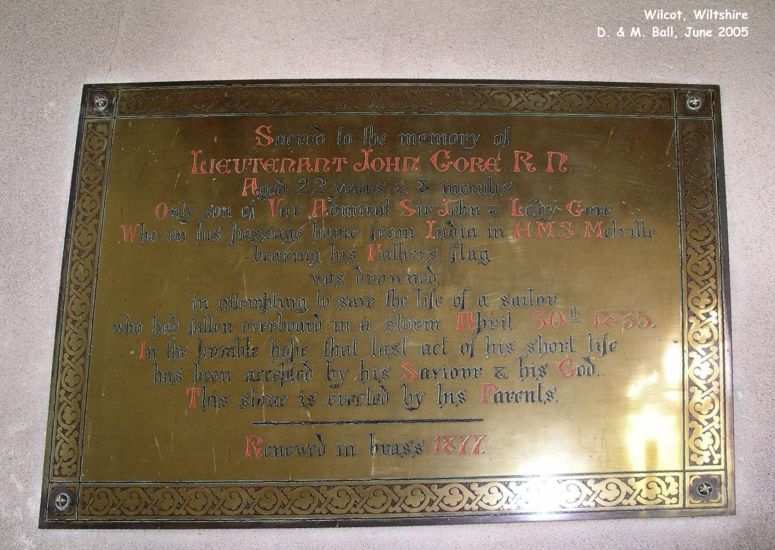 Wilcot, Wiltshire
D. & M. Ball, June 2005
Sacred to the memory of
LIEUTENANT JOHN GORE R. N.
Aged 22 years & 8 months
Only son of Vice Admiral Sir John & Lady Gore
Who on his passage home from India in H.M.S. Melville
bearing his Fathers flag
was drowned,
in attempting to save the life of a sailor
who had fallen overboard in a storm April 30th 1835.
In the humble hope that last act of his short life
has been accepted by his Saviour & his God.
This stone is erected by his Parents.
Renewed in brass 1877.